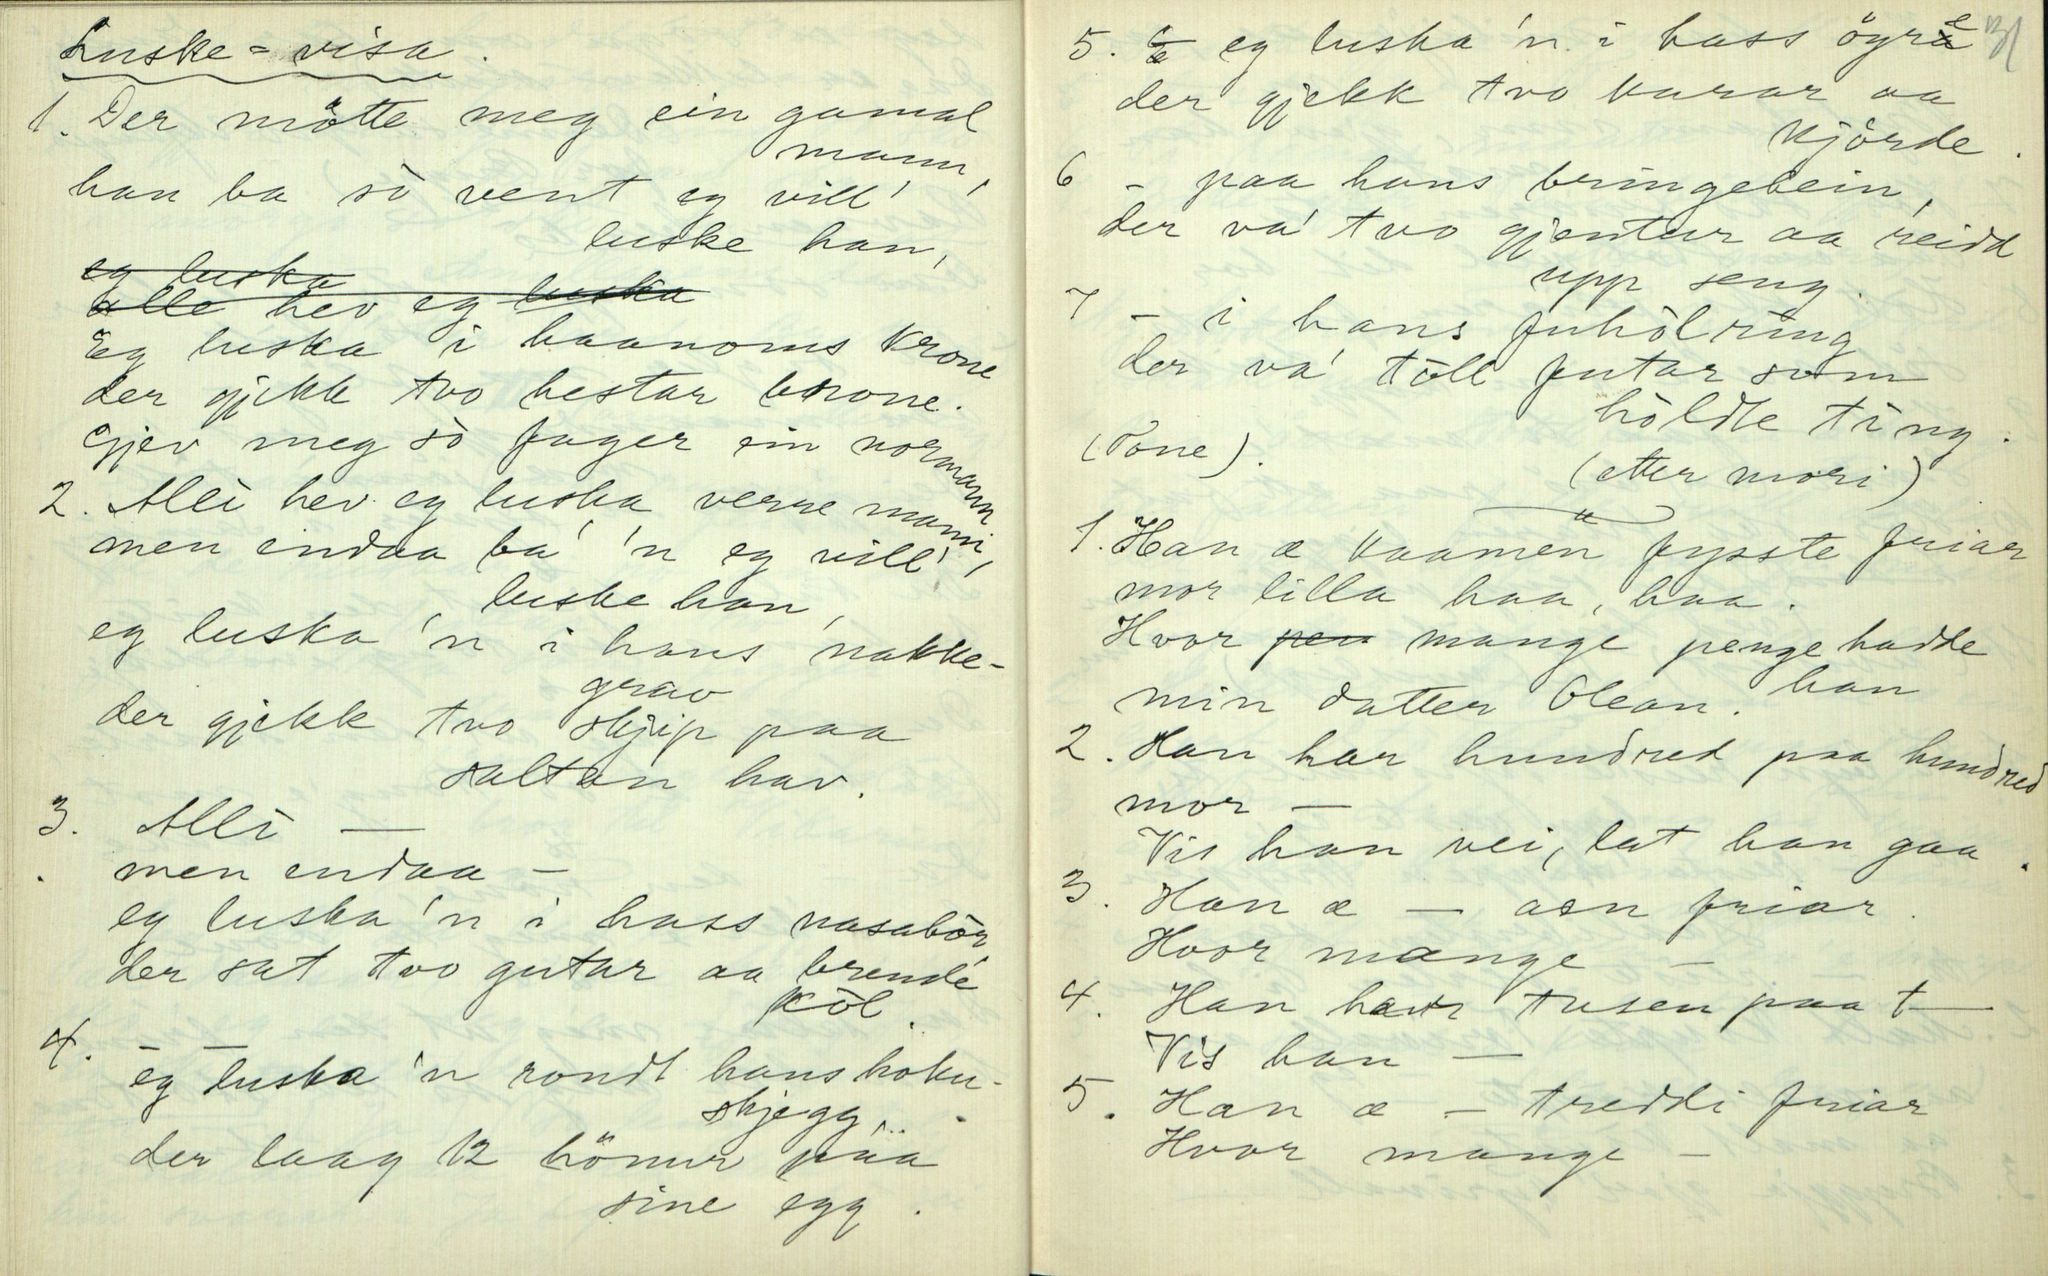 Luske-visa.
1. Der mötte meg ein gamal
mann,
han ba sò vent eg vill'
luske han,
eg luska
alle hev eg luska
Eg luska i haanoms krone
der gjekk tvo hestar brone.
Gjev meg sò fager ein normann
2. Alli hev eg luska verre mann,
men endaa ba' 'n eg vill'
luske han,
eg luska 'n i hans nakke-
grav
der gjekk tvo skjip paa
saltan hav.
3. Alli —
men endaa —
eg luska 'n i hass nasabòr
der sat tvo gutar aa brende
kòl.
4. — —
eg luska 'n rondt hans hoku-
skjegg,
der laag 12 hönur paa
sine egg.
5. — eg luska 'n i hass öyre
der gjekk tvo karar aa
kjörde.
6 — paa hans bringebein,
der va' tvo gjentur aa reidd
upp seng.
7 — i hans fuhòlring
der va' tòll futar som
hòldte ting.
(Tone). (etter mori)
1. Han æ kaamen fysste friar
mor lilla haa, haa.
Hvor pen mange penge hadde
han
min datter Olean.
2. Han har hundred paa hundred
mor —
Vis han vei, lat han gaa.
3. Han æ — aen friar.
Hvor mange —
4. Han har tusen paa t—
Vis han —
5. Han æ — treddi friar
Hvor mange —